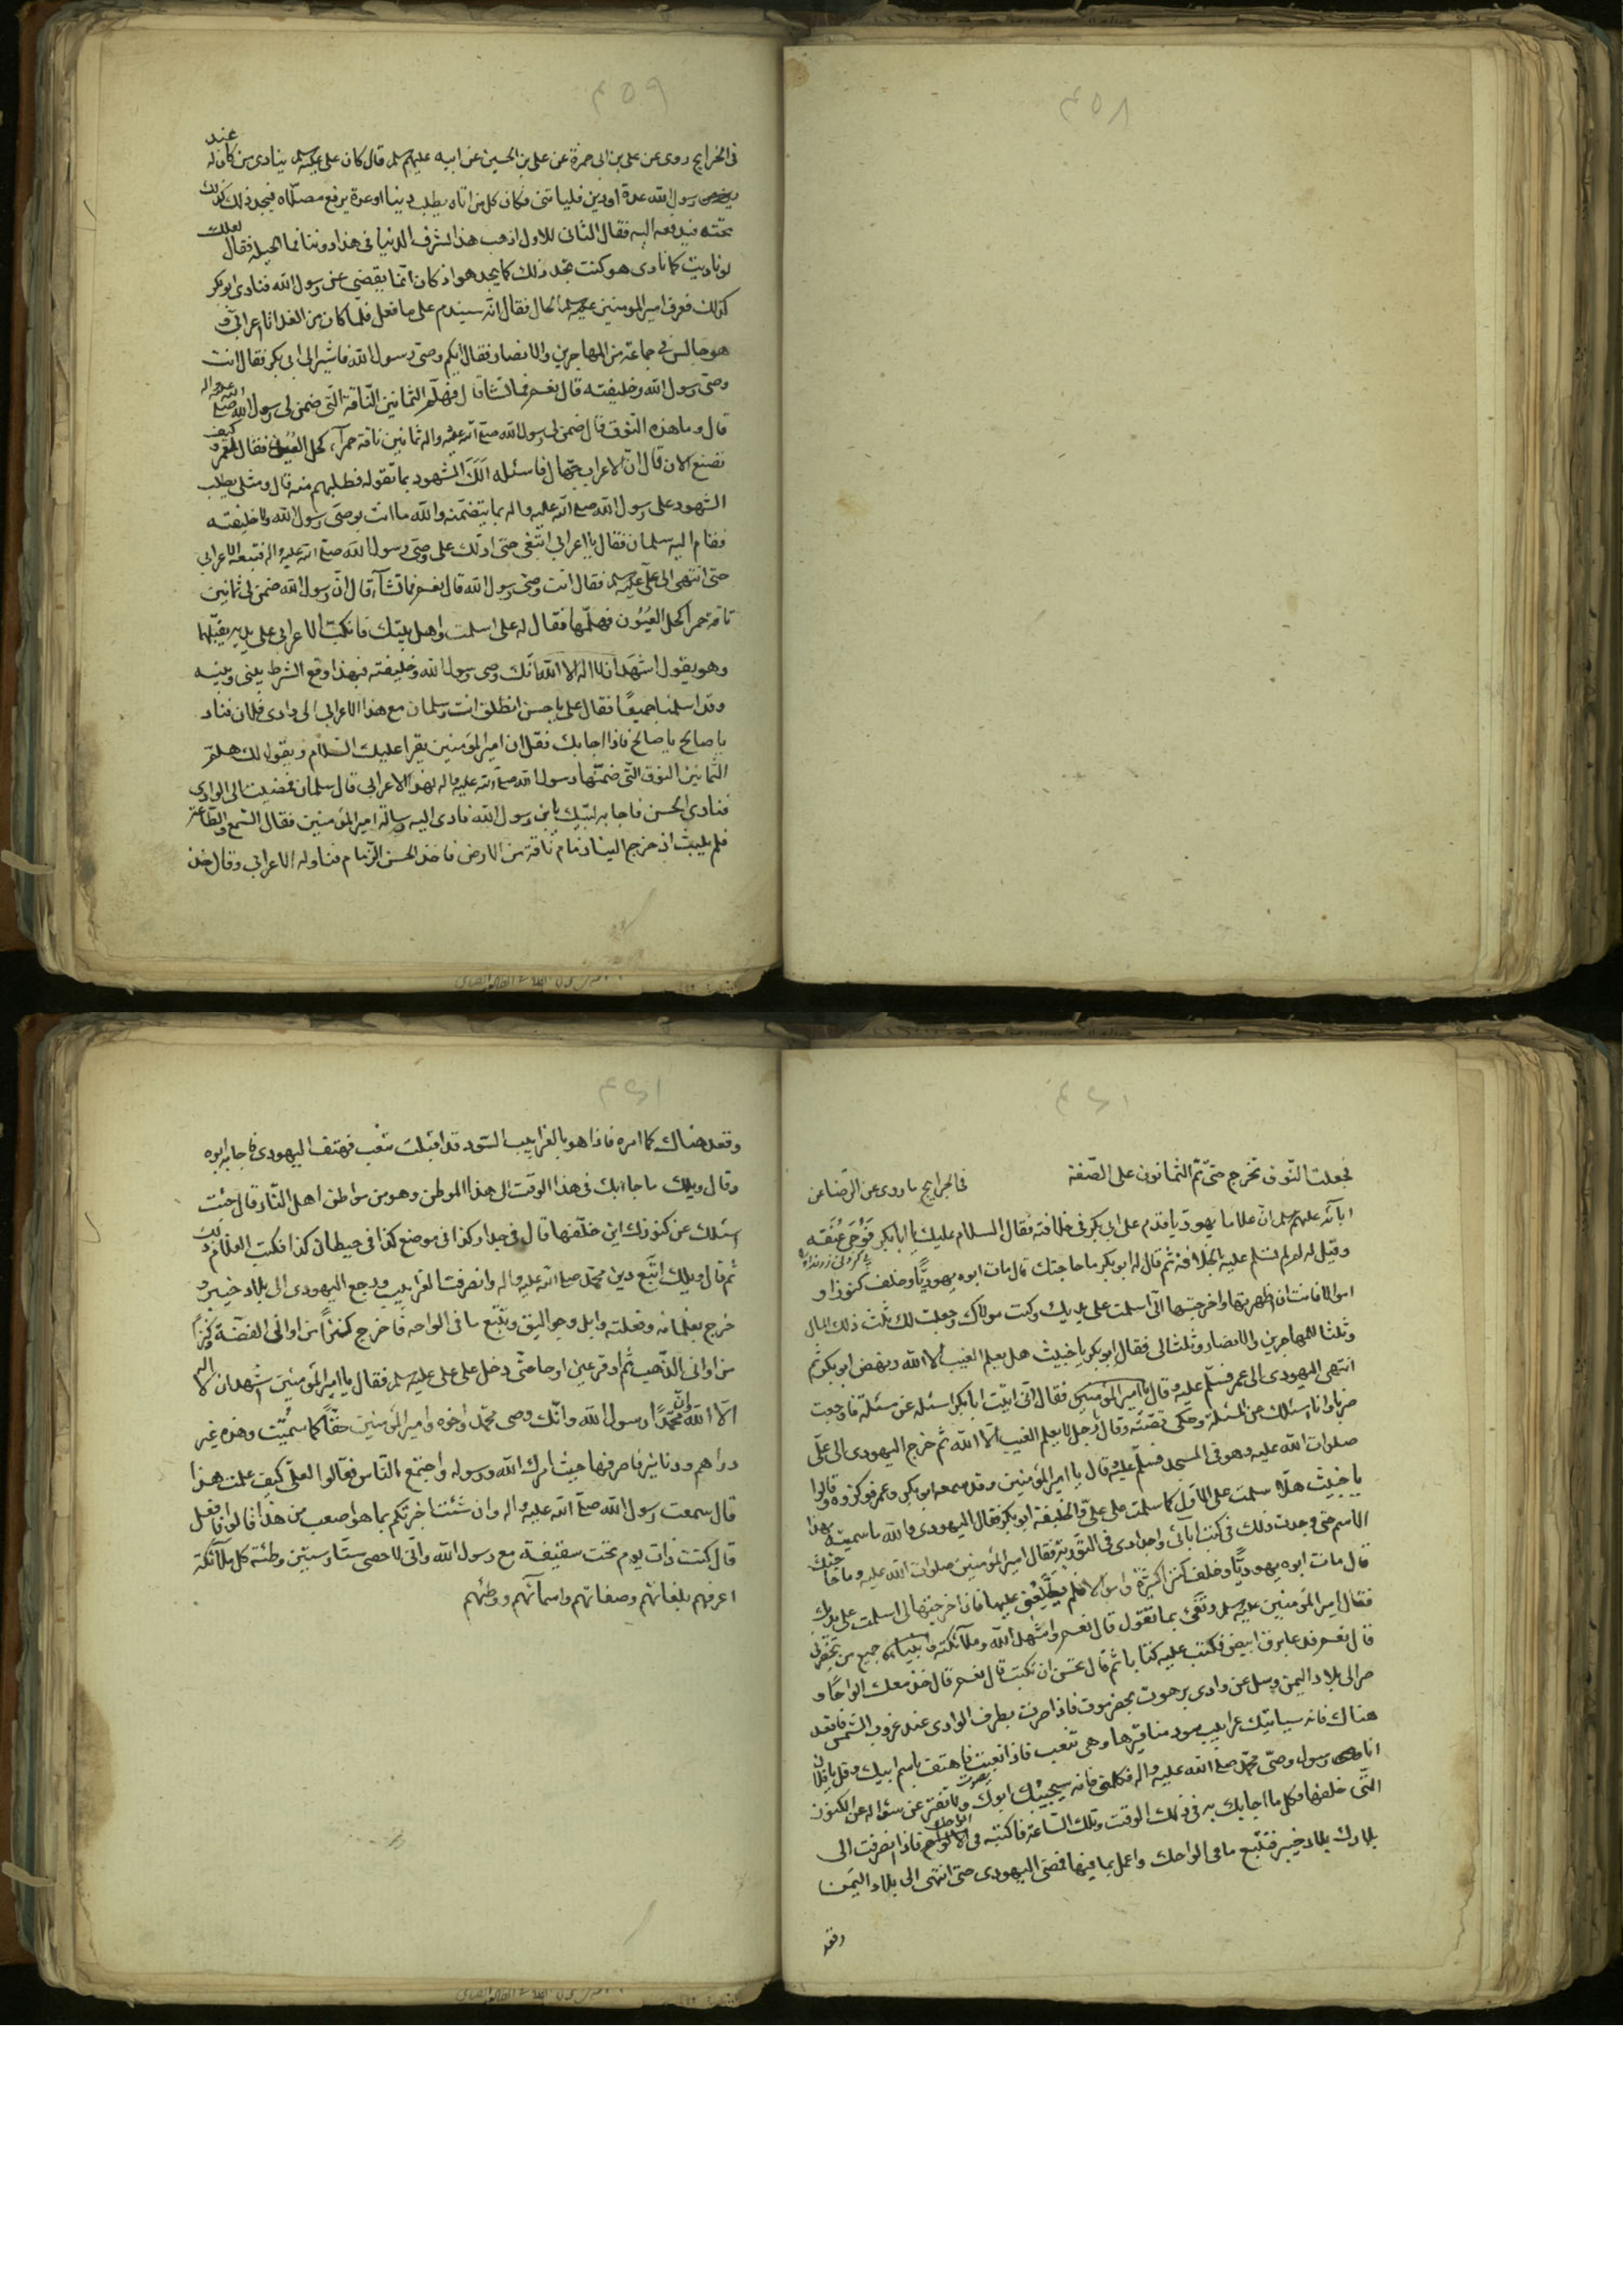 ٤٥٨
٤٥٩
عند
فى الخرايج روى عن على بن ابى حمزة عن على بن الحسين عن ابيه عليهم سلم قال كان على عليه سلم ينادى من كان له
رسول الله عدة او دين فلياتنى فكان كل من اتاه يطلب دينا او عدة يرفع مصلاه فيجد ذلك كذلك
تحته فيدفعه اليه فقال الثانى للاول اذهب هذا بشرف الدنيا فى هذا دوننا فما الحيلة فقال لعلك
لو ناديت كما نادى هو كنت تجد ذلك كما يجد هو اذ كان انما يقضى عن رسول الله فنادى ابو بكر
كذلك فعرف امير المؤمنين عليه سلم الحال فقال انه سيندم على ما فعل فلما كان من الغد اتاه اعرابى و
هو جالس فى جماعة من المهاجرين والانصار فقال ايكم وصى رسول الله فاشير الى ابى بكر فقال انت
وصى رسول الله وخليفته قال نعم فما تشا قال فهلم الثمانين الناقة التى ضمن لى رسول الله صلى الله عليه واله
قال وما هذه النوق قال ضمن لى رسول الله صلى الله عليه واله ثمانين ناقة حمراء كحل العيون فقال لعمر كيف
نصنع الان قال ان الاعراب جهال فاسئله الك الشهود بما تقوله فطلبهم منه قال ومثلى يطلب
الشهود على رسول الله صلى الله عليه واله بما يتضمنه والله ما انت بوصى رسول الله ولا خليفته
فقام اليه سلمان فقال يا اعرابى اتبعنى حتى ادلك على وصى رسول الله صلى الله عليه واله فتبعه الاعرابى
حتى انتهى الى على عليه سلم فقال انت وصى رسول الله قال نعم فما تشاء قال ان رسول الله ضمن لى ثمانين
ناقة حمرا كحل العيون فهلمها فقال له على اسلمت واهل بيتك فانكبت الاعرابى على يديه يقبلهما
وهو يقول اشهد ان لا اله الا الله انك وصى رسول الله وخليفته فبهذا وقع الشرط بينى وبينه
وقد اسلمنا جميعًا فقال على يا حسن انطلق انت وسلمان مع هذا الاعرابى الى وادى فلان فناد
يا صالح يا صالح فاذا اجابك فقل ان امير المؤمنين يقرا عليك السلام ويقول لك هلم
الثمانين النوق التى ضمنها رسول الله صلى الله عليه واله لهذا الاعرابى قال سلمان فمضيت الى الوادى
فنادى الحسن فاجابه لبيك يا بن رسول الله فادى اليه رسالة امير المؤمنين فقال السمع والطاعة
فلم يلبث ان خرج الينا زمام ناقة من الارض فاخذ الحسن الزمام فناوله الاعرابى وقال خذ
فجعلت النوق تخرج حتى تم الثمانون على الصفة فى الخرايج ما روى عن الرضا عن
ابائه عليهم سلم ان غلاما يهوديا قدم على ابى بكر فى خلافته فقال السلام عليك يا ابا بكر فوجئ عنقه
وقيل له لم لم تسلم عليه بالخلافة ثم قال له ابو بكر ما حاجتك قال مات ابوه يهوديًا وخلف كنوزا و
اموالا فانت ان اظهرتها واخرجتها الى اسلمت على يديك وكنت مولاك وجعلت لك ثلث ذلك المال
وثلثا للمهاجرين والانصار وثلثا لى فقال ابو بكر يا خبيث هل يعلم الغيب الا الله ونهض ابو بكر ثم
انتهى اليهودى الى عمر فسلم عليه وقال يا امير المؤمنين فقال انى اتيت ابا بكر اسئله عن مسئلة فاوجعت
ضربا وانا اسئلك عن المسئلة وحكى قصته وقال رجل لا يعلم الغيب الا الله ثم خرج اليهودى الى على
صلوات الله عليه وهو فى المسجد فسلم عليه وقال يا امير المؤمنين وقد سمعه ابو بكر وعمر فوكزوه وقالوا
يا خبيث هلا سلمت على الاول كما سلمت على على والخليفة ابو بكر فقال اليهودى والله ما سميته بهذا
الاسم حتى وجدت ذلك فى كتب آبائى واجدادى فى التورية فقال امير المؤمنين صلوات الله عليه وما حاجتك
قال مات ابوه يهوديًا وخلف كنزا كثيرًة واموالا فلم يطلعنى عليها فان اخرجتها لى اسلمت على يديك
فقال امير المؤمنين عليه سلم وتفى بما تقول قال نعم واشهد الله وملائكته وانبيائه جميع من يحضرنى
قال نعم فدعا برق ابيض فكتب عليه كتابا ثم قال تحسن ان تكتب قال نعم قال خذ معك الواحًا و
صر الى بلاد اليمن وسل عن وادى برهوت بحضرموت فاذا صرت بطرف الوادى عند غروب الشمس فاقعد
هناك فانه سياتيك غرابيب سود مناقيرها وهى تنعب فاذا نعبت فاهتف باسم ابيك وقل يا فلان
انا رسول وصى محمد صلى الله عليه واله فكلمنى فانه سيجيبك ابوك ولا تفتر عن سؤاله عن الكنوز
التى خلفها وكل ما اجابك به فى ذلك الوقت وتلك الساعة فاكتبه فى الالواح فاذا انصرفت الى
بلادك بلاد خيبر فتتبع ما فى الواحك واعمل بما فيها فمضى اليهودى حتى انتهى الى بلاد اليمن
وقعد
٤٦١
وقعد هناك كما امره فاذا هو بالغرابيب السود قد اقبلت تنعب فهتف اليهودى فاجابه ابوه
وقال ويلك ما جاء بك فى هذا الوقت الى هذا الموطن وهو من مواطن اهل النار قال جئت
اسئلك عن كنوزك اين خلفتها قال فى جدار كذا فى موضع كذا فى حيطان كذا فكتب الغلام ذلك
ثم قال ويلك اتبع دين محمد صلى الله عليه واله وانصرفت الغرابيب ورجع اليهودى الى بلاد خيبر و
خرج بغلمانه وفعلته وابل وجواليق وتتبع ما فى الواحه فاخرج كنزًا من اوانى الفضة وكنزًا
من اوانى الذهب ثم اوقر عيرا وجا حتى دخل على على عليه سلم فقال يا امير المؤمنين اشهد ان لا اله
الا الله وان محمدًا رسول الله وانك وصى محمد واخوه وامير المؤمنين حقًا كما سُميت وهذه عير
دراهم ودنانير فاصرفها حيث امرك الله ورسوله واجتمع الناس فقالوا لعلى كيف علمت هذا
قال سمعت رسول الله صلى الله عليه واله وان شئت اخبرتكم بما هو اصعب من هذا قالوا فافعل
قال كنت ذات يوم تحت سقيفة مع رسول الله وانى لاحصى ستا وستين وطئة كل ملائكة
اعرفهم بلغاتهم وصفاتهم واسمآئهم ووطئهم